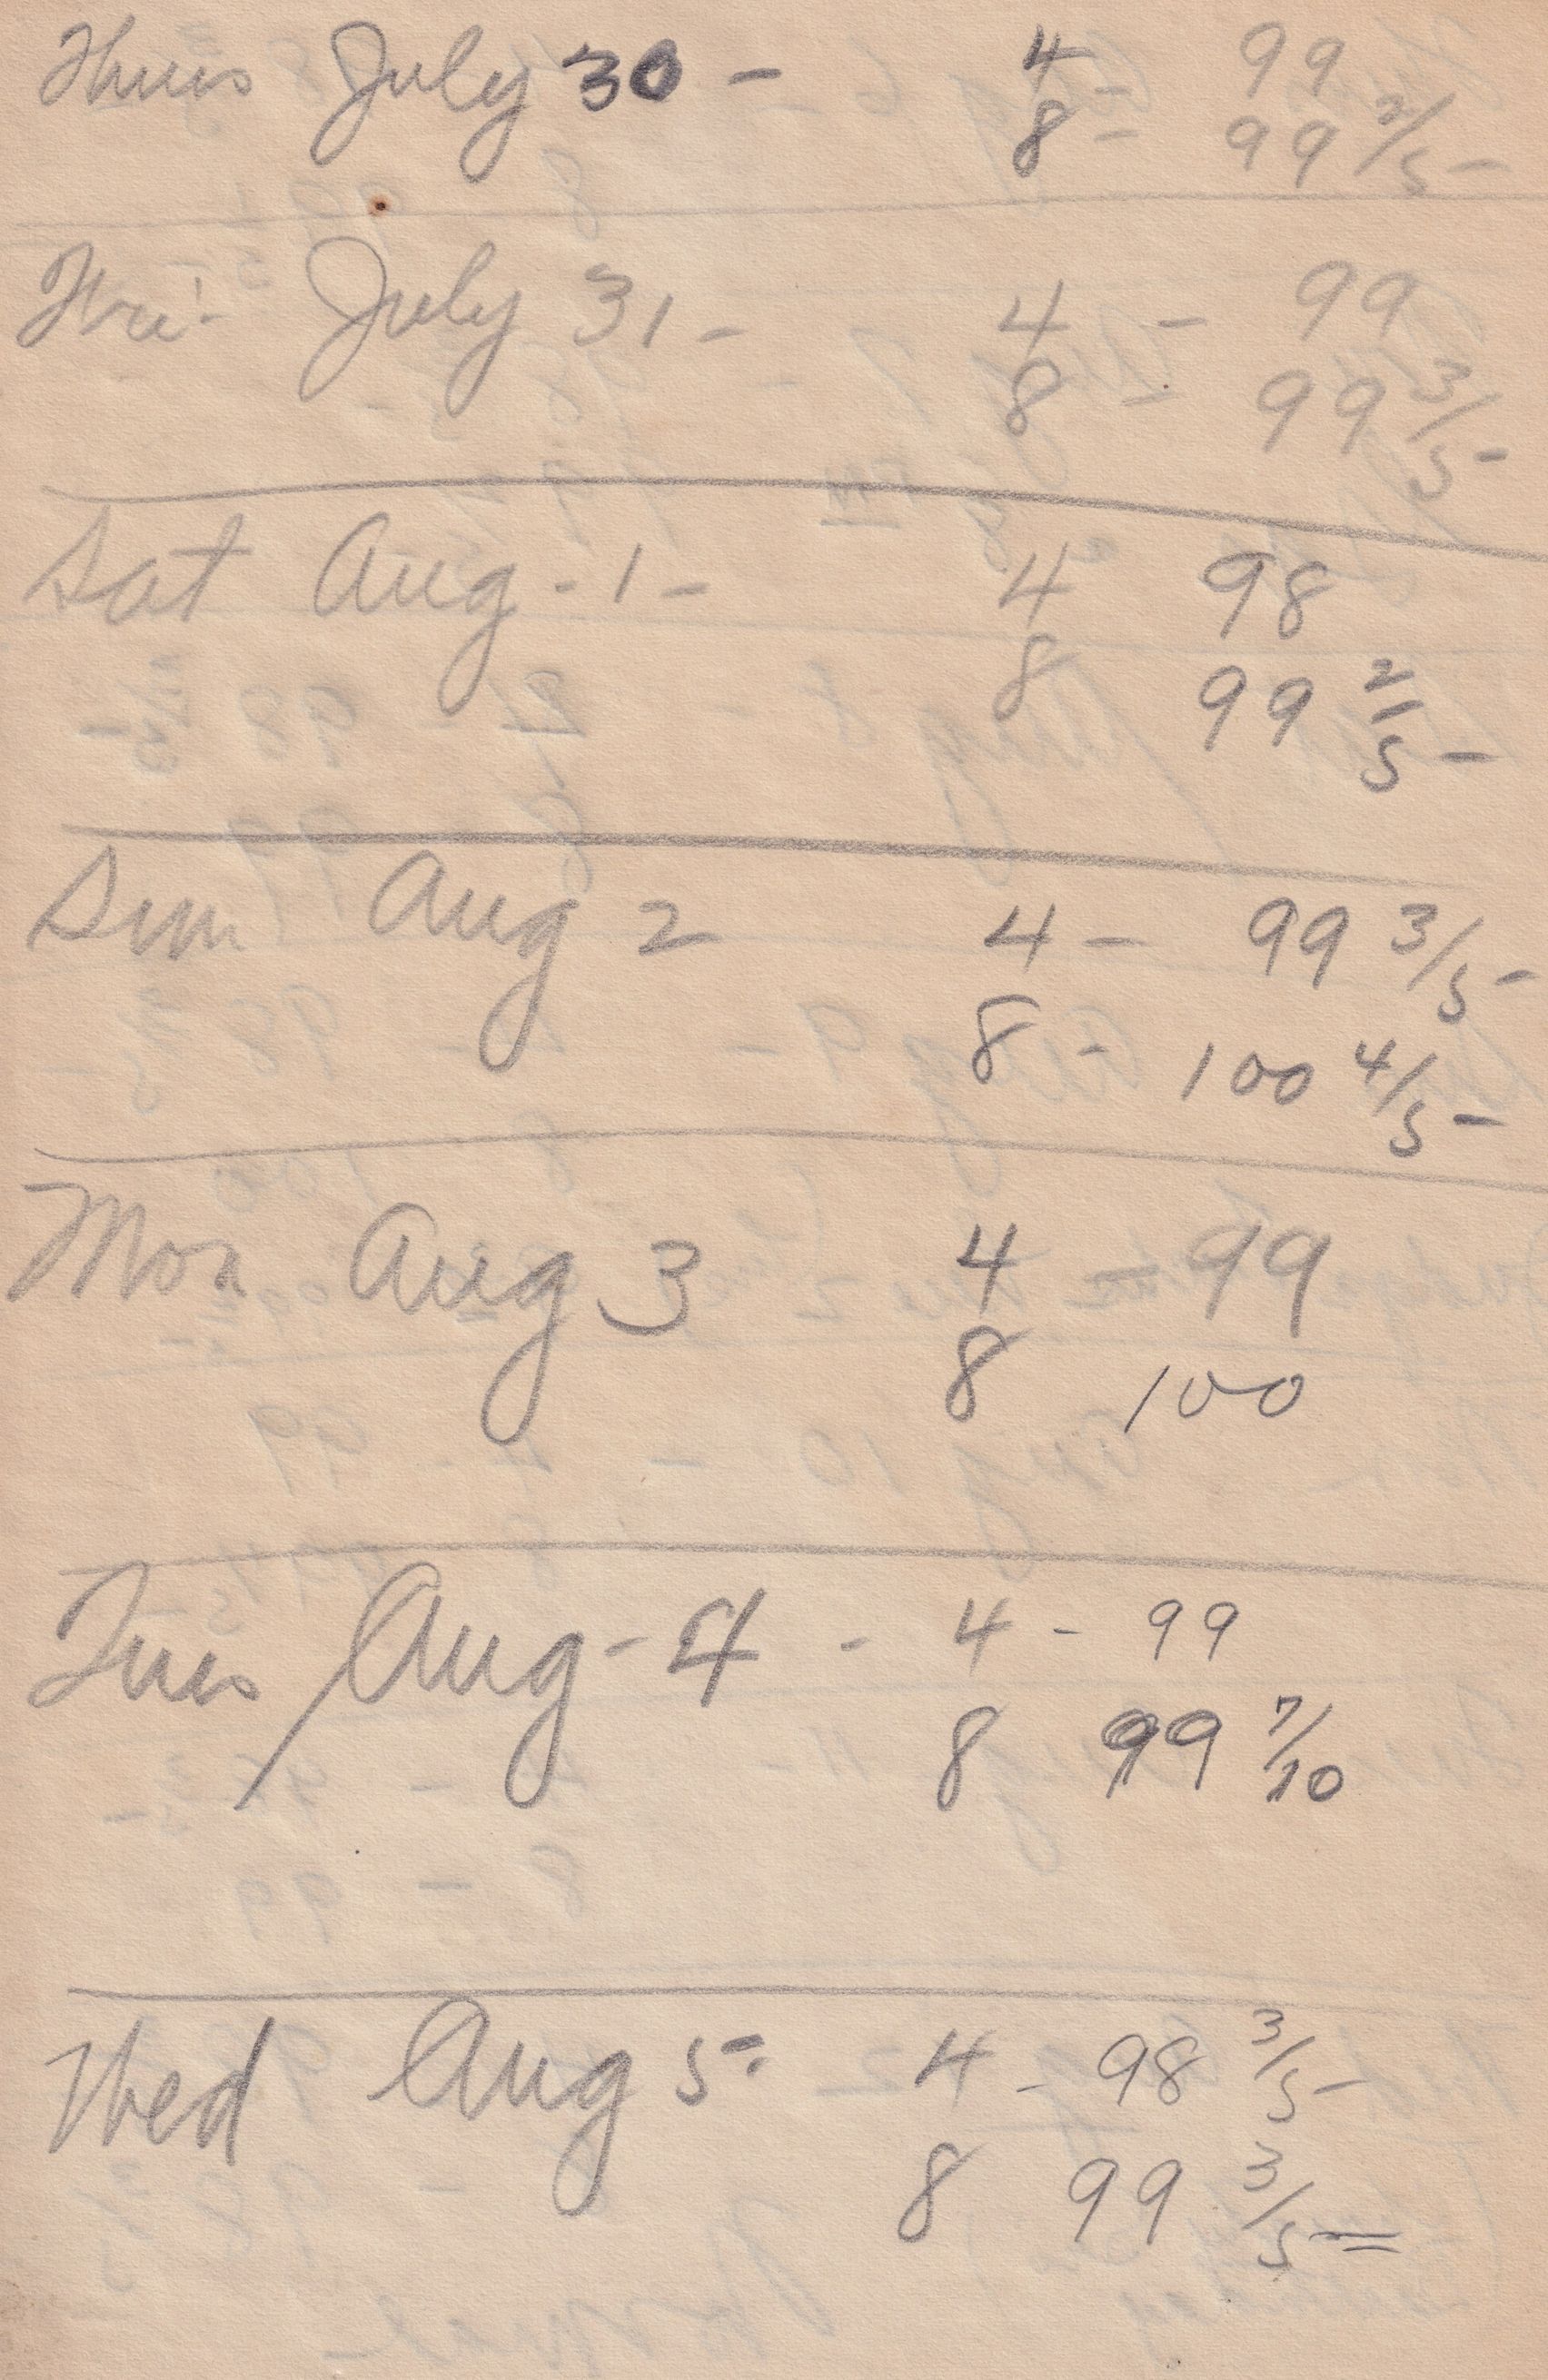 Thurs July 30 - 4 - 99
8 - 99 2/5 -
Fri - July 31 - 4 - 99
8 - 99 3/5 -
Sat Aug - 1 - 4 98
8 99 2/5 -
Sun Aug 2 4 - 99 3/5 -
8 - 100 4/5 -
Mon Aug 3 4 - 99
8 100
Tues Aug - 4 - 4 - 99
8 99 7/10
Wed Aug 5 - 4 - 98 3/5 -
8 99 3/5 =